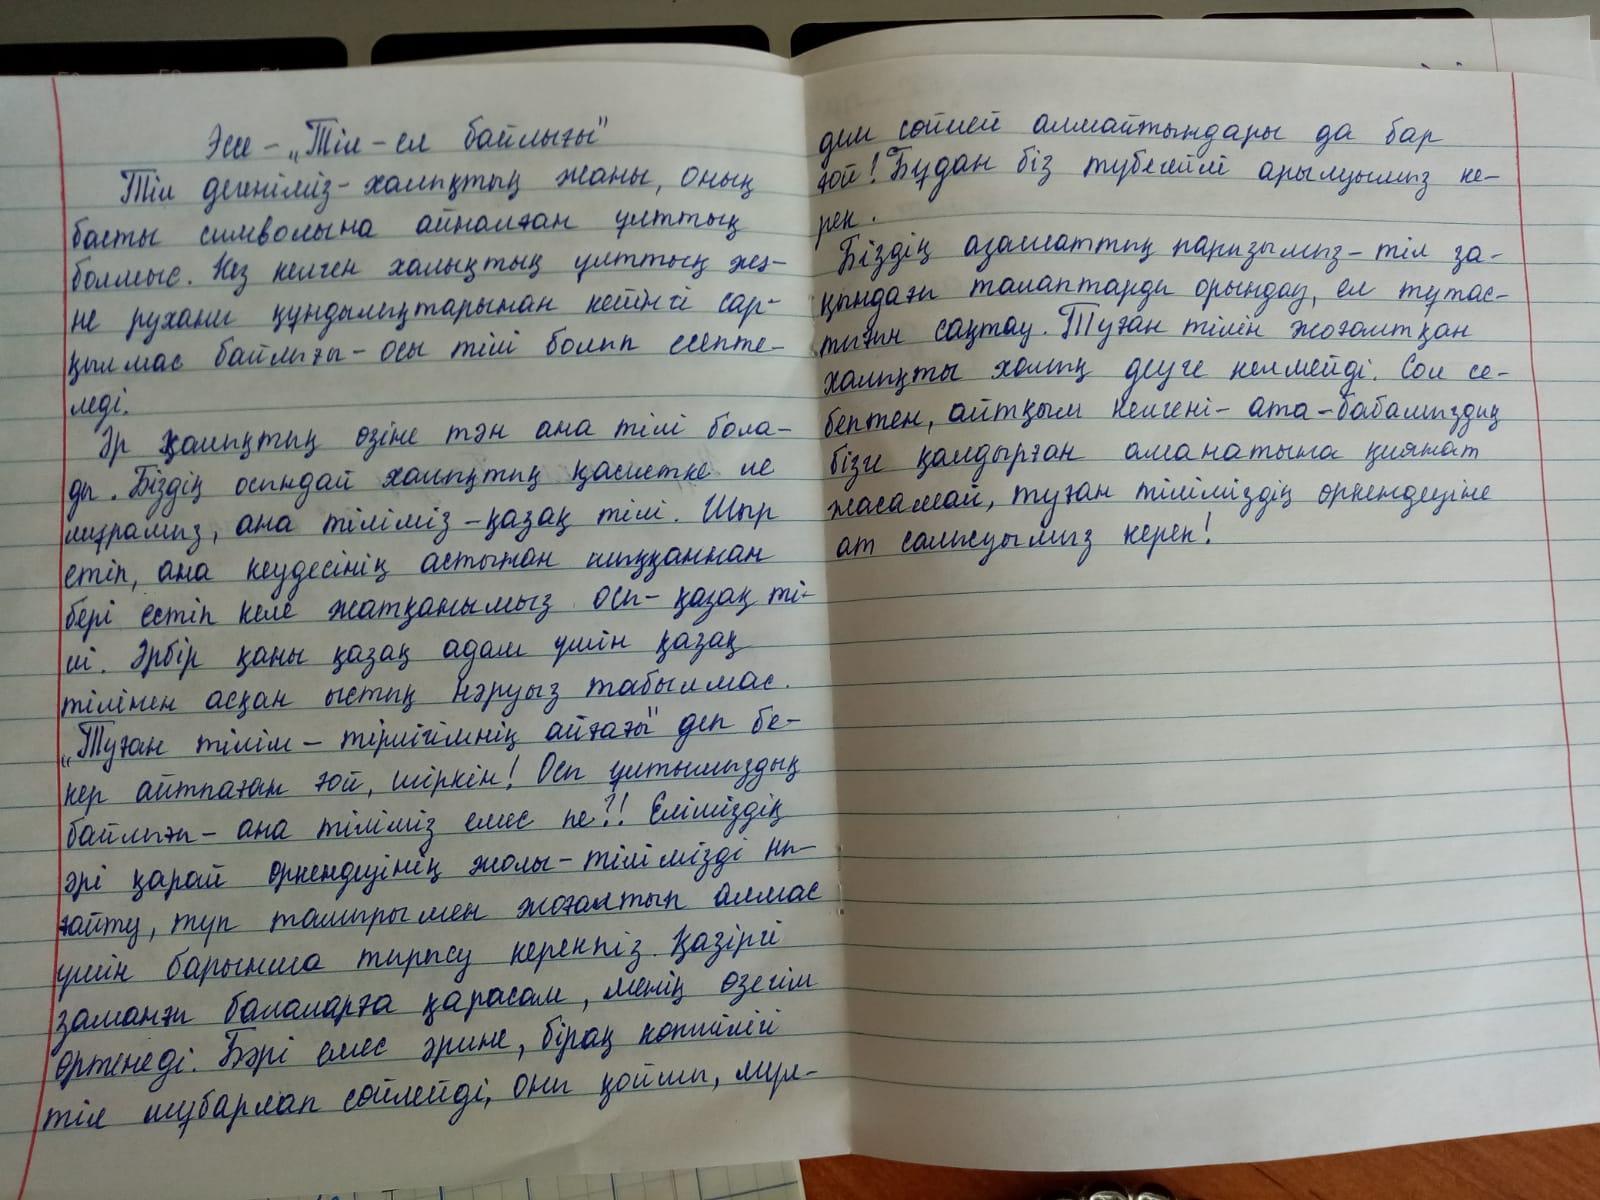 Эссе – „Тіл – ел байлығы"
Тіл дегеніміз – халықтың жаны, оның
басты символына айналған ұлттық
болмыс. Кез келген халықтың ұлттық жә-
не рухани құндылықтарынан кейінгі сар-
қылмас байлығы – осы тілі болып есепте-
леді.
Әр халықтың өзіне тән ана тілі бола-
ды. Біздің осындай халықтық қасиетке ие
мұрамыз, ана тіліміз – қазақ тілі. Шыр
етіп, ана кеудесінің астынан шыққаннан
бері естіп келе жатқанымыз осы – қазақ ті-
лі. Әрбір қаны қазақ адам үшін қазақ
тілінен асқан ыстық нәруыз табылмас.
„Туған тілім – тірлігімнің айғағы" деп бе-
кер айтпаған ғой, шіркін! Осы ұлтымыздың
байлығы – ана тіліміз емес пе?! Еліміздің
әрі қарай өркендеуінің жолы – тілімізді ны-
ғайту, түп тамырымен жоғалтып алмас
үшін барынша тырысу керекпіз. Қазіргі
заманғы балаларға қарасам, менің өзегім
өртенеді. Бәрі емес әрине, бірақ көпшілігі
тіл шұбарлап сөйлейді, оны қойшы, мүл-
дем сөйлей алмайтындары да бар
ғой! Бұдан біз түбегейлі арылуымыз ке-
рек.
Біздің азаматтық парызымыз – тіл за-
қындағы талаптарды орындау, ел тұтас-
тығын сақтау. Туған тілін жоғалтқан
халықты халық деуге келмейді. Сол се-
бептен, айтқым келгені – ата-бабамыздың
бізге қалдырған аманатына қиянат
жасамай, туған тіліміздің өркендеуіне
ат салысуымыз керек!